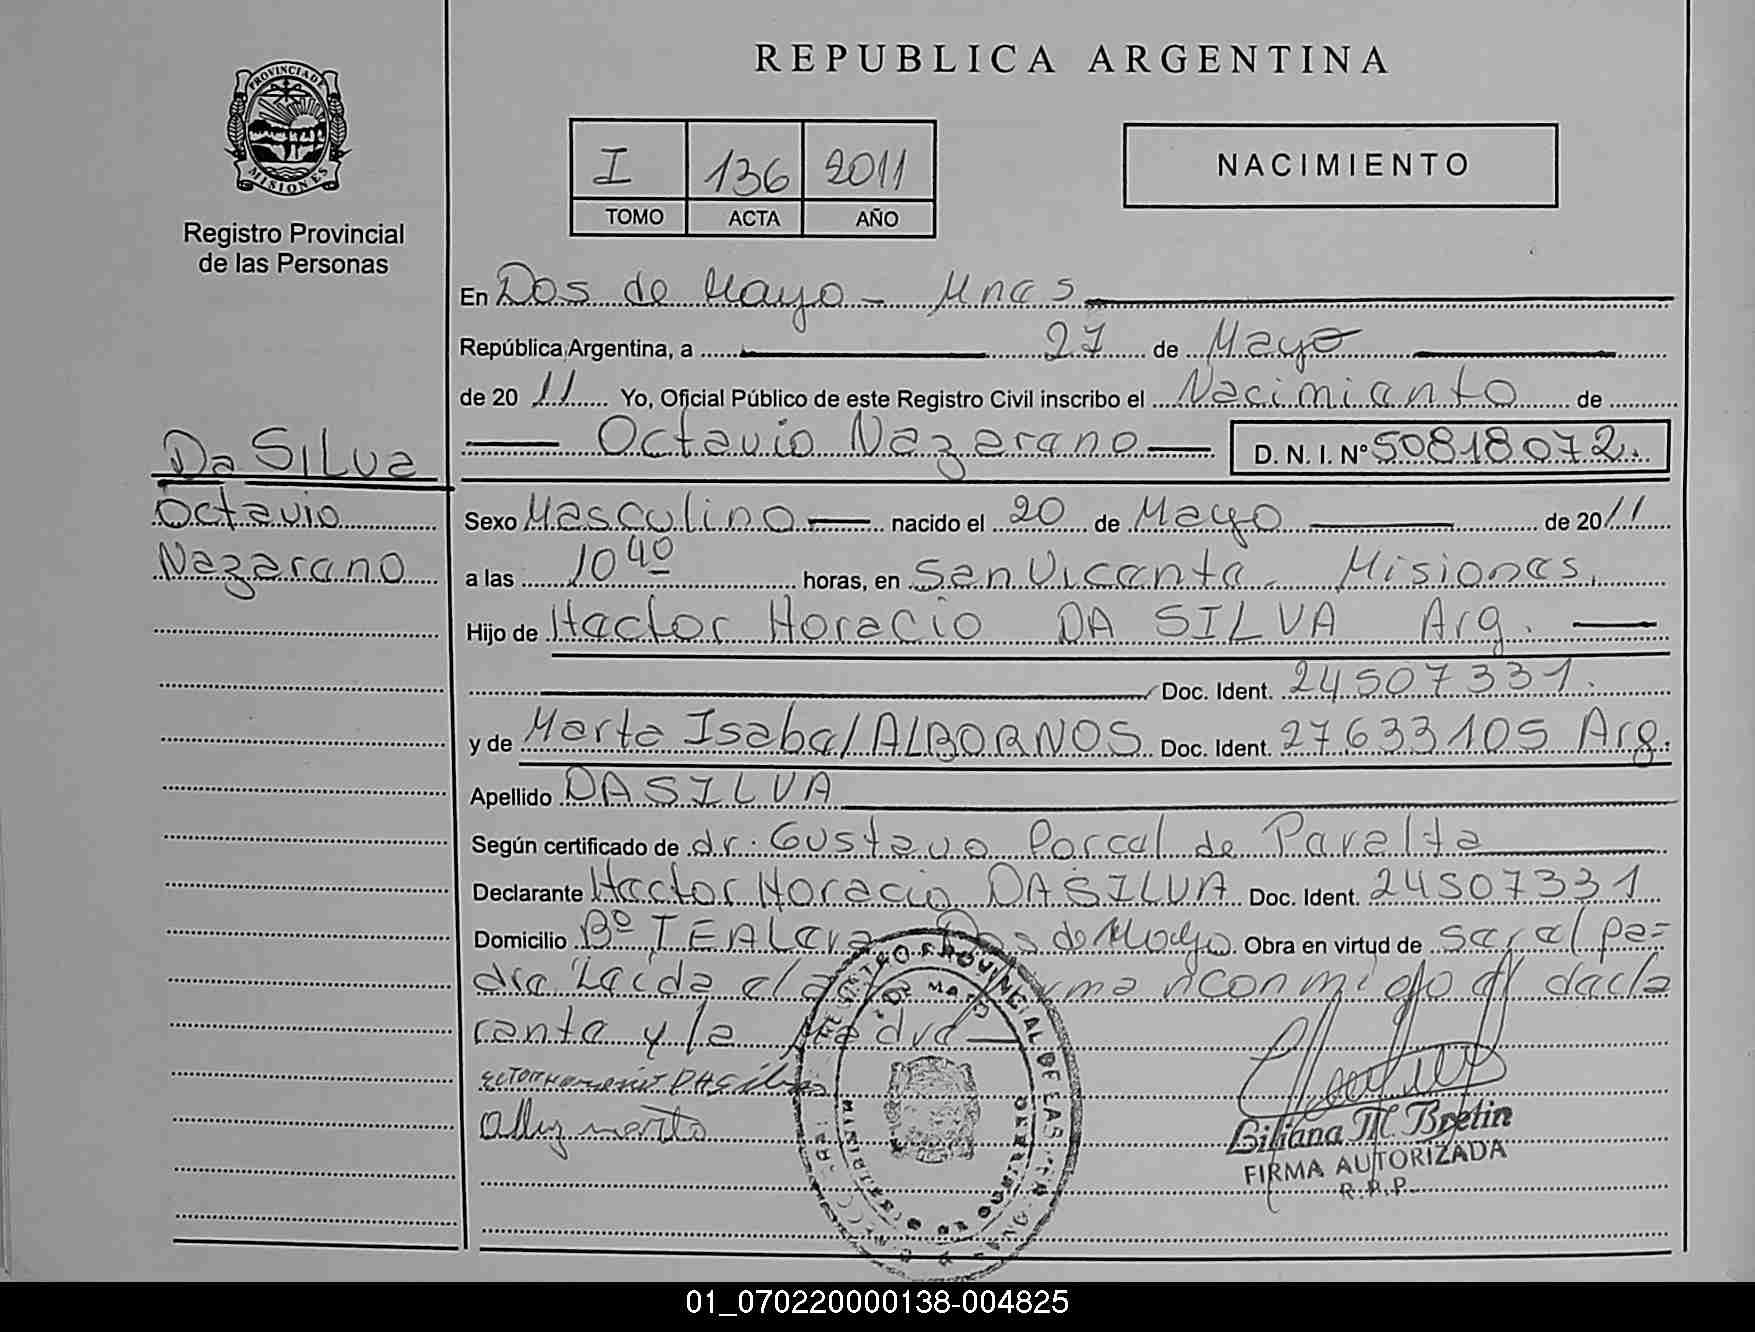 REPUBLICA ARGENTINA
PROVINCIA DE
MISIONES
Registro Provincial
de las Personas
I 136 2011
TOMO ACTA AÑO
NACIMIENTO
En Dos de Mayo - Mnes
República Argentina, a 27 de Mayo
de 20 11 Yo, Oficial Público de este Registro Civil inscribo el Nacimiento de
Octavio Nazareno D. N. I. Nº 50818072.
Da SILva
Octavio
Nazareno
Sexo Masculino nacido el 20 de Mayo de 20 11
a las 10 40 horas, en San Vicente - Misiones
Hijo de Hector Horacio DA SILVA Arg.
Doc. Ident. 24507331.
y de Marta Isabel ALBORNOS Doc. Ident. 27633105 Arg.
Apellido DA SILVA
Según certificado de dr. Gustavo Porcel de Peralta
Declarante Hector Horacio DA SILVA Doc. Ident. 24507331
Domicilio Bº TEALera Dos de Mayo. Obra en virtud de ser el pa=
dre Leida el acta firman conmigo el decla
rante y la Madre
REGISTRO PROVINCIAL DE LAS
2 DE MAYO
MINISTERIO DE GOBIERNO
Liliana M Bretin
FIRMA AUTORIZADA
R.P.P.
01_070220000138-004825